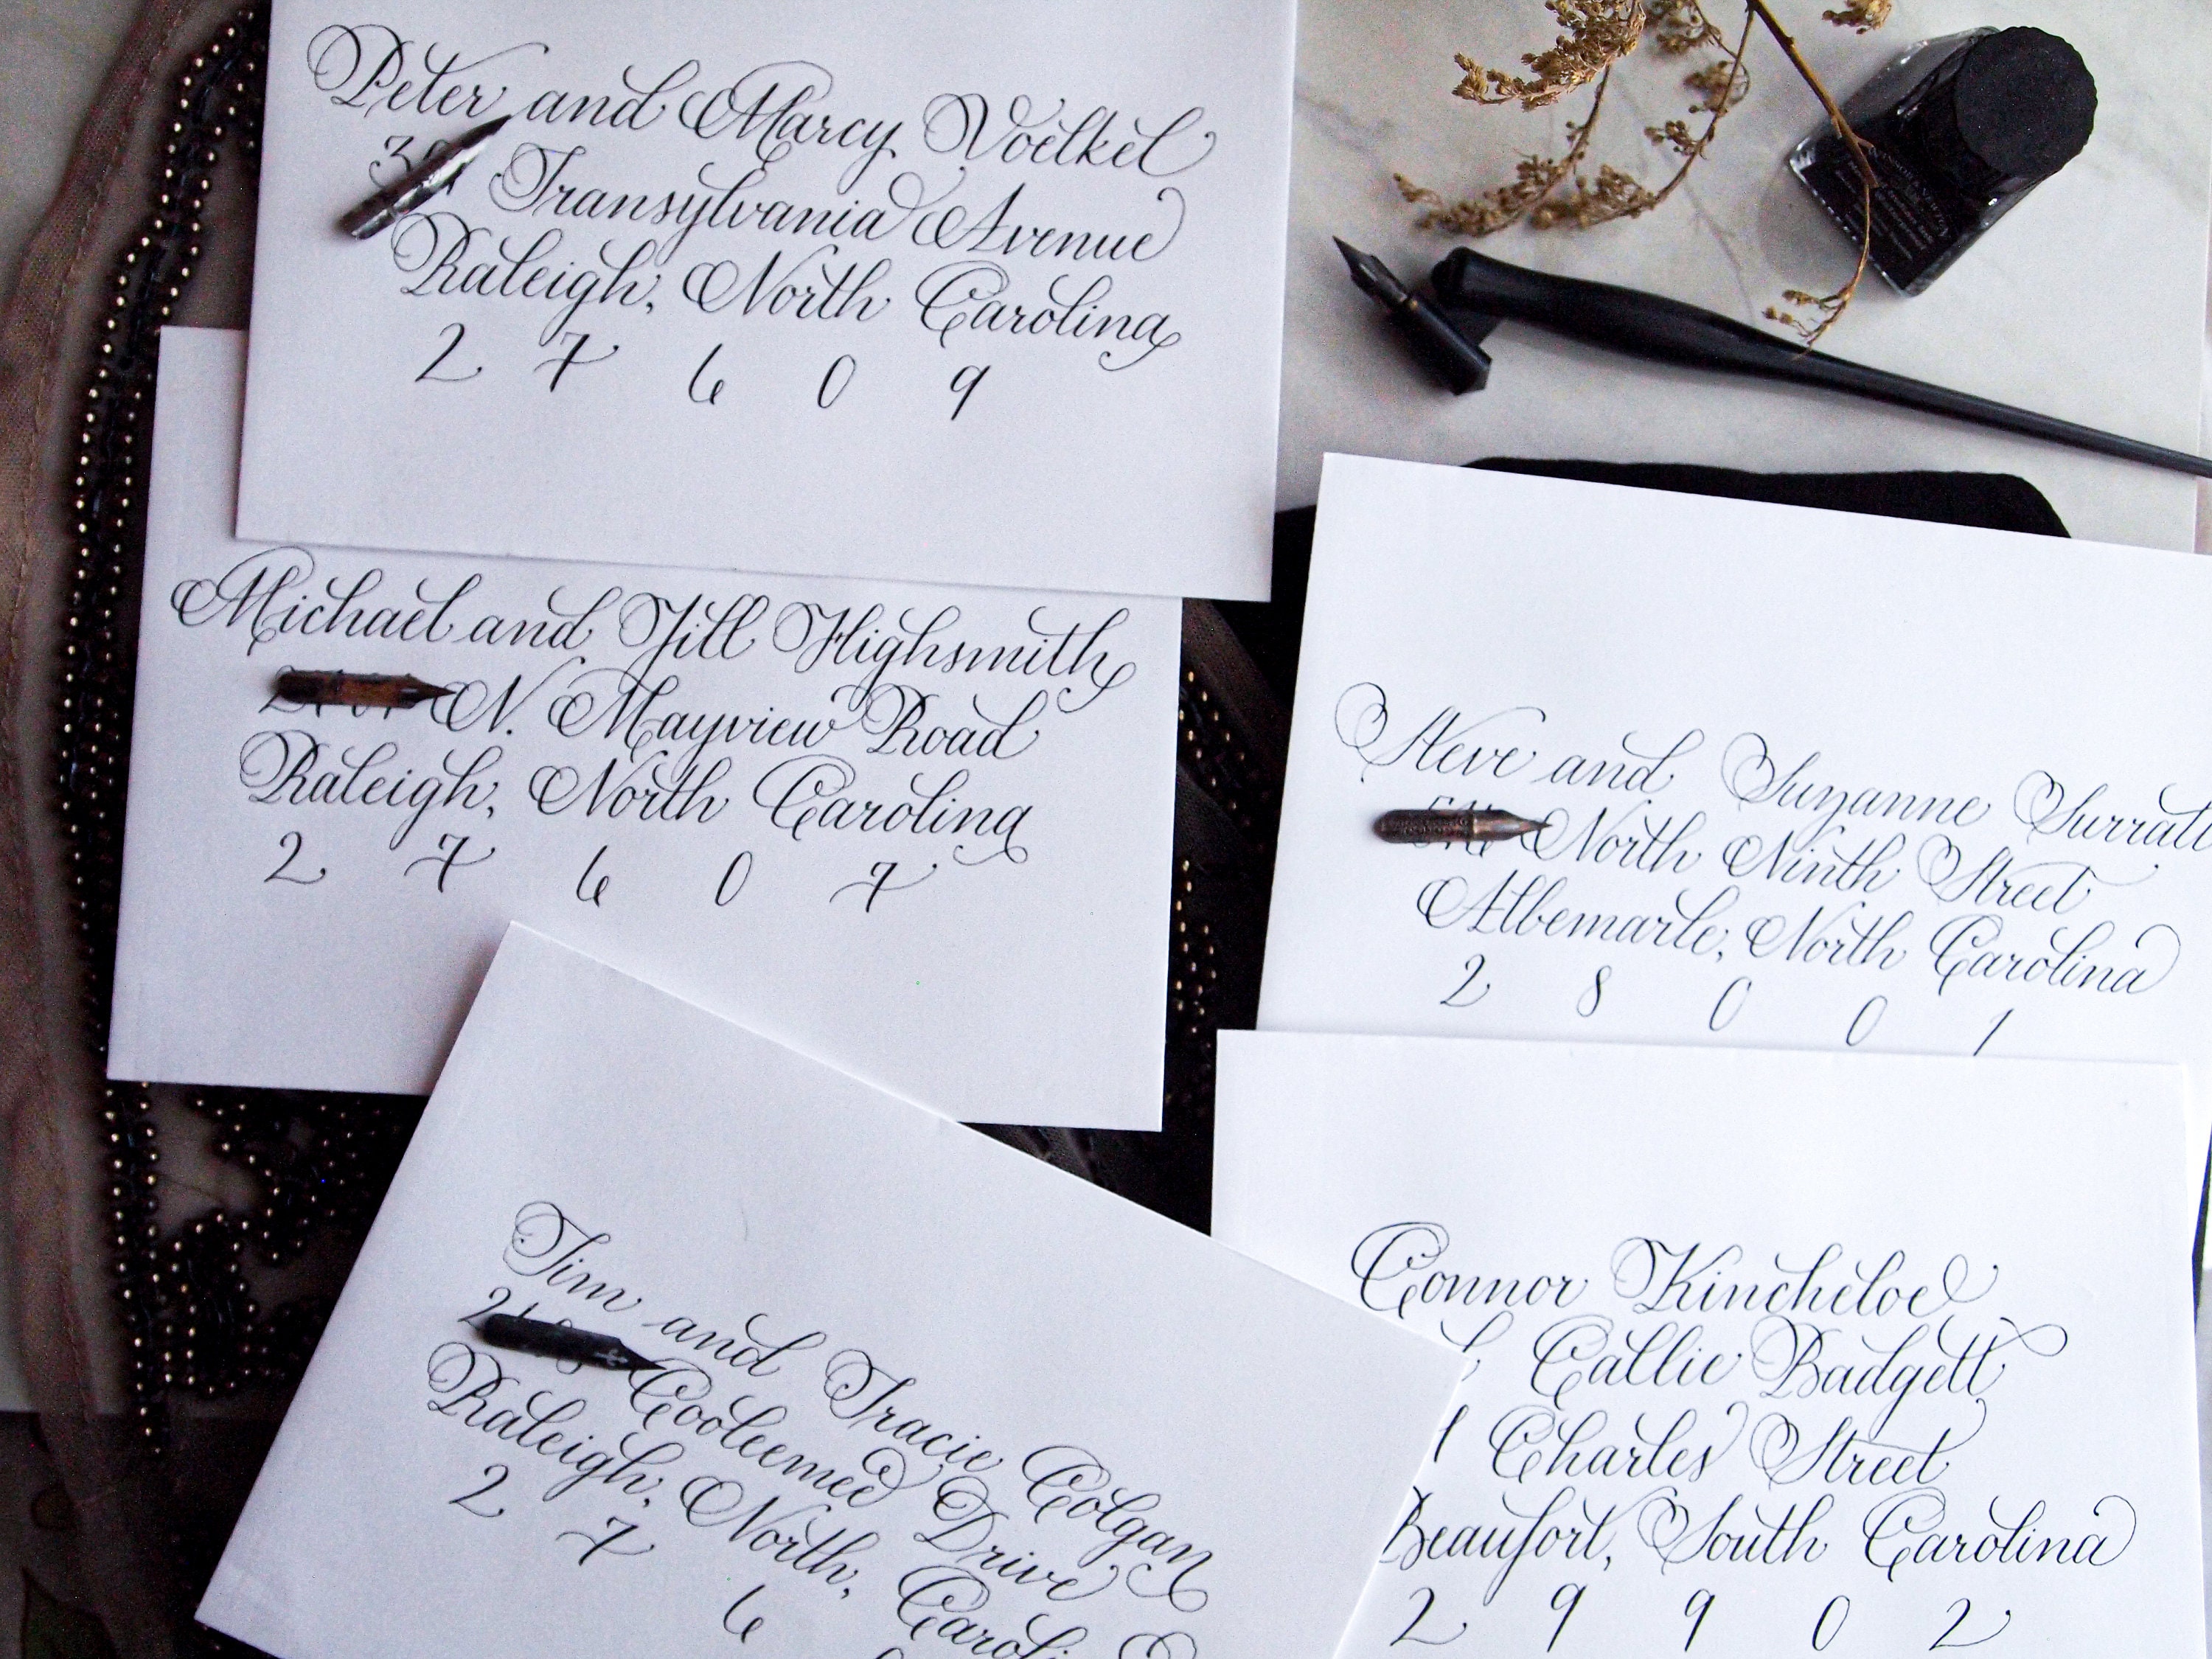 Peter and Marcy Voelkel
Transylvania Avenue
Raleigh, North Carolina
2 7 6 0 9
Michael and Jill Highsmith
N. Mayview Road
Raleigh, North Carolina
2 7 6 0 7
Steve and Suzanne Surratt
North Ninth Street
Albemarle, North Carolina
2 8 0 0 1
Tim and Tracie Colgan
Cooleemee Drive
Raleigh, North, Caroli
2 7 6
Connor Kincheloe
Callie Badgett
Charles Street
Beaufort, South Carolina
2 9 9 0 2
WINSOR & NEWTON